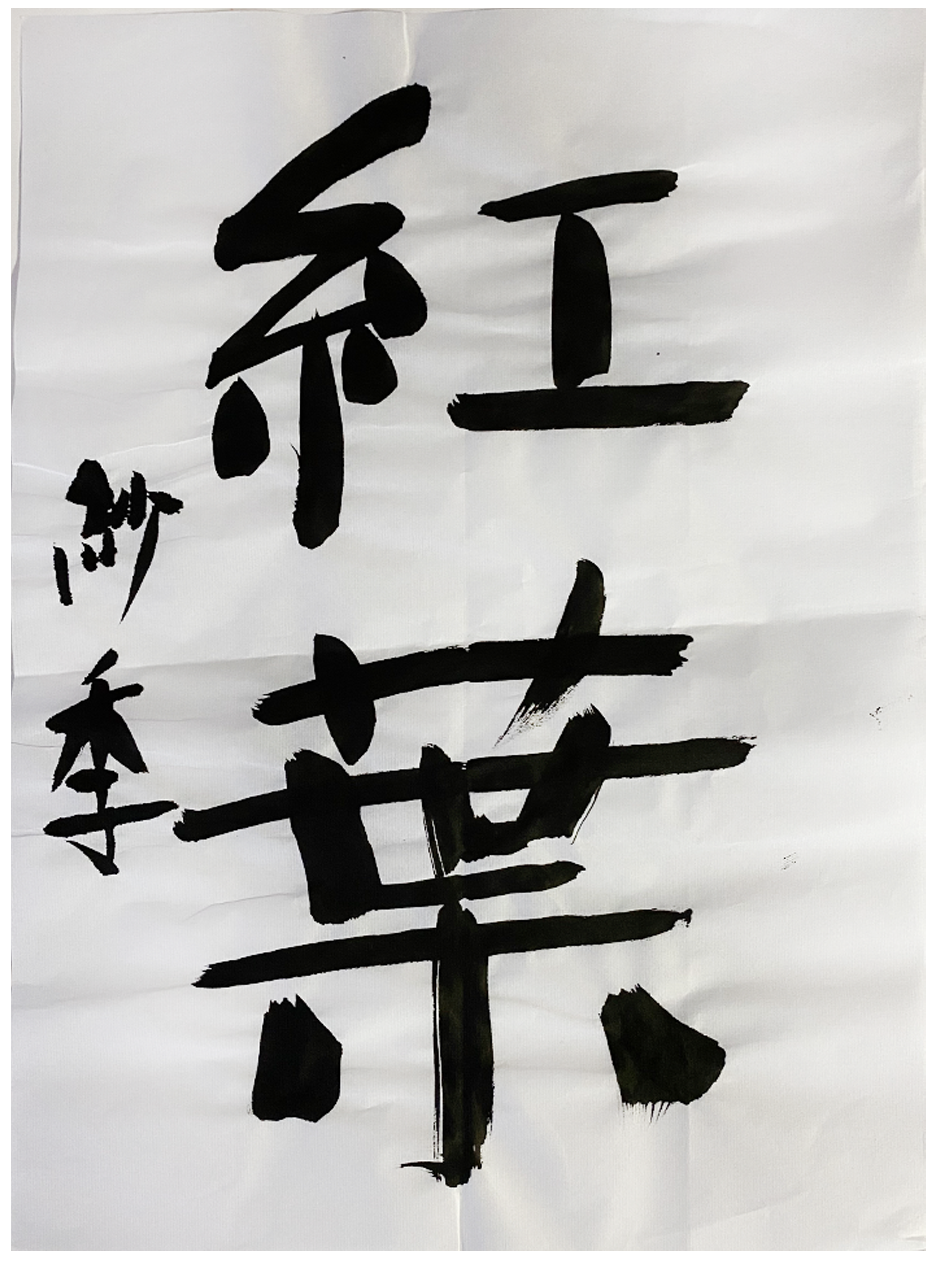 紅葉
紗季